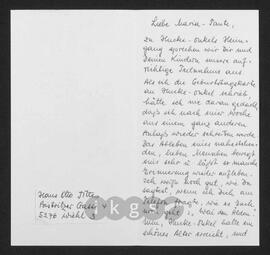 Liebe Maria-Tante,
zu Hucke-Onkels Heim-
gang sprechen wir Dir und
Deinen Kindern unsere auf-
richtige Teilnahme aus.
Als ich die Geburtstagskarte
an Hucke-Onkel schrieb
hätte ich nie daran gedacht
daß ich nach einer Woche
aus einem ganz anderen
Anlaß wieder schreiben werde.
Das Ableben eines nahestehen-
den, lieben Menschen bewegt
uns sehr u. läßt so manche
Erinnerung wieder aufleben.
Ich weiß noch gut, wie Du
sagtest, wenn ich Dich am
Telefon fragte, wie es Euch
Hucke-Onkel hatte ein
schönes Alter erreicht, und
Hans Otto
5276 Wiehl